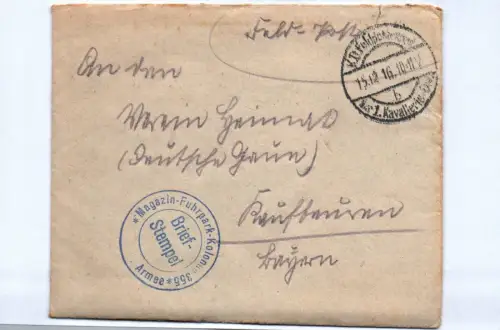 Feld-Post
15.12.16.10-11V.
b
1. Kavallerie-Div
An den
Verein Heimat
(Deutsche Gaun)
Kaufbeuren
Bayern
* Magazin-Fuhrpark-Kolonne 355 * Armee
Brief-
Stempel